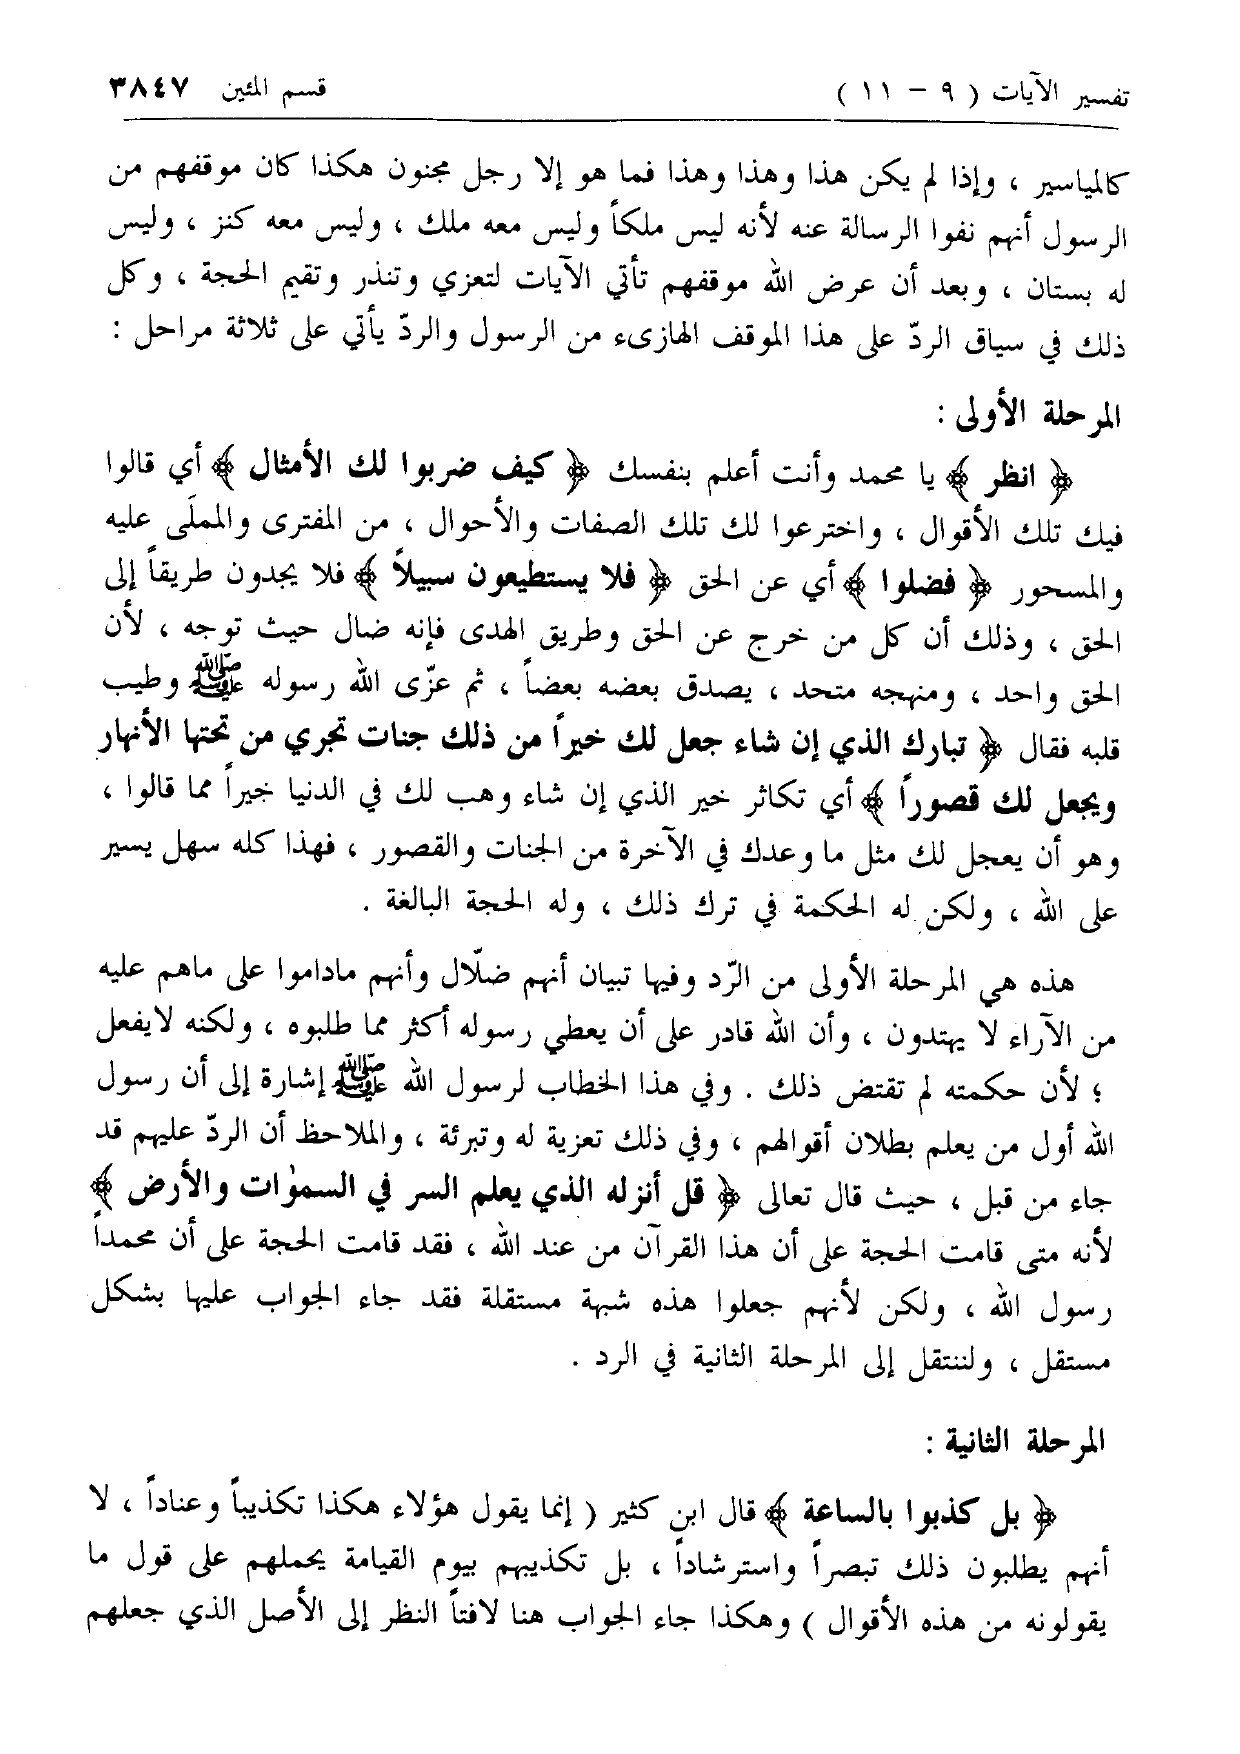 تفسير الآيات ( ٩ – ١١ ) قسم المئين ٣٨٤٧
كالمياسير ، وإذا لم يكن هذا وهذا وهذا فما هو إلا رجل مجنون هكذا كان موقفهم من
الرسول أنهم نفوا الرسالة عنه لأنه ليس ملكاً وليس معه ملك ، وليس معه كنز ، وليس
له بستان ، وبعد أن عرض الله موقفهم تأتي الآيات لتعزي وتنذر وتقيم الحجة ، وكل
ذلك في سياق الردّ على هذا الموقف الهازىء من الرسول والردّ يأتي على ثلاثة مراحل :
المرحلة الأولى :
﴿ انظر ﴾ يا محمد وأنت أعلم بنفسك ﴿ كيف ضربوا لك الأمثال ﴾ أي قالوا
فيك تلك الأقوال ، واخترعوا لك تلك الصفات والأحوال ، من المفترى والمملَى عليه
والمسحور ﴿ فضلوا ﴾ أي عن الحق ﴿ فلا يستطيعون سبيلاً ﴾ فلا يجدون طريقاً إلى
الحق ، وذلك أن كل من خرج عن الحق وطريق الهدى فإنه ضال حيث توجه ، لأن
الحق واحد ، ومنهجه متحد ، يصدق بعضه بعضاً ، ثم عزّى الله رسوله ﷺ وطيب
قلبه فقال ﴿ تبارك الذي إن شاء جعل لك خيراً من ذلك جنات تجري من تحتها الأنهار
ويجعل لك قصوراً ﴾ أي تكاثر خير الذي إن شاء وهب لك في الدنيا خيراً مما قالوا ،
وهو أن يعجل لك مثل ما وعدك في الآخرة من الجنات والقصور ، فهذا كله سهل يسير
على الله ، ولكن له الحكمة في ترك ذلك ، وله الحجة البالغة .
هذه هي المرحلة الأولى من الرّد وفيها تبيان أنهم ضلّال وأنهم ماداموا على ماهم عليه
من الآراء لا يهتدون ، وأن الله قادر على أن يعطي رسوله أكثر مما طلبوه ، ولكنه لايفعل
؛ لأن حكمته لم تقتض ذلك . وفي هذا الخطاب لرسول الله ﷺ إشارة إلى أن رسول
الله أول من يعلم بطلان أقوالهم ، وفي ذلك تعزية له وتبرئة ، والملاحظ أن الردّ عليهم قد
جاء من قبل ، حيث قال تعالى ﴿ قل أنزله الذي يعلم السر في السمٰوات والأرض ﴾
لأنه متى قامت الحجة على أن هذا القرآن من عند الله ، فقد قامت الحجة على أن محمداً
رسول الله ، ولكن لأنهم جعلوا هذه شبهة مستقلة فقد جاء الجواب عليها بشكل
مستقل ، ولننتقل إلى المرحلة الثانية في الرد .
المرحلة الثانية :
﴿ بل كذبوا بالساعة ﴾ قال ابن كثير ( إنما يقول هؤلاء هكذا تكذيباً وعناداً ، لا
أنهم يطلبون ذلك تبصراً واسترشاداً ، بل تكذيبهم بيوم القيامة يحملهم على قول ما
يقولونه من هذه الأقوال ) وهكذا جاء الجواب هنا لافتاً النظر إلى الأصل الذي جعلهم